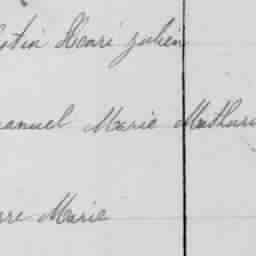 stin Henri julien
manuel Marie Mathuri
rre Marie